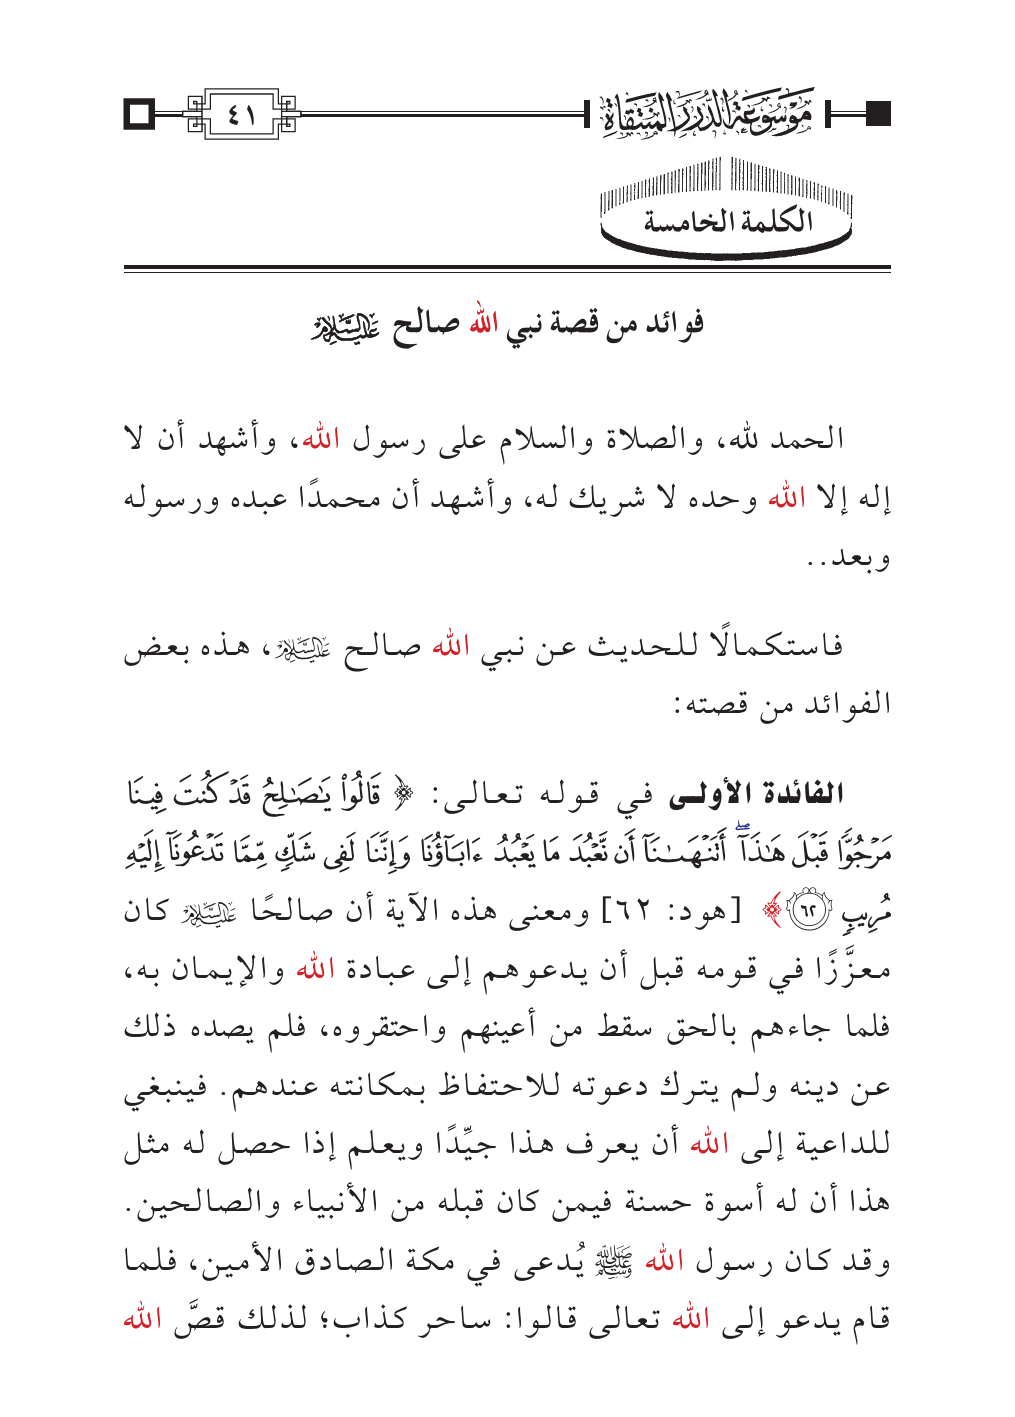 موسوعة الدرر المنتقاة
٤١
الكلمة الخامسة
فوائد من قصة نبي الله صالح عليه السلام
الحمد لله، والصلاة والسلام على رسول الله، وأشهد أن لا
إله إلا الله وحده لا شريك له، وأشهد أن محمدًا عبده ورسوله
وبعد..
فاستكمالًا للحديث عن نبي الله صالح عليه السلام، هذه بعض
الفوائد من قصته:
الفائدة الأولى في قوله تعالى: ﴿ قَالُوا۟ يَـٰصَـٰلِحُ قَدْ كُنتَ فِينَا
مَرْجُوًّا قَبْلَ هَـٰذَآ ۖ أَتَنْهَىٰنَآ أَن نَّعْبُدَ مَا يَعْبُدُ ءَابَآؤُنَا وَإِنَّنَا لَفِى شَكٍّ مِّمَّا تَدْعُونَآ إِلَيْهِ
مُرِيبٍ ٦٢ ﴾ [هود: ٦٢] ومعنى هذه الآية أن صالحًا عليه السلام كان
معزَّزًا في قومه قبل أن يدعوهم إلى عبادة الله والإيمان به،
فلما جاءهم بالحق سقط من أعينهم واحتقروه، فلم يصده ذلك
عن دينه ولم يترك دعوته للاحتفاظ بمكانته عندهم. فينبغي
للداعية إلى الله أن يعرف هذا جيِّدًا ويعلم إذا حصل له مثل
هذا أن له أسوة حسنة فيمن كان قبله من الأنبياء والصالحين.
وقد كان رسول الله ﷺ يُدعى في مكة الصادق الأمين، فلما
قام يدعو إلى الله تعالى قالوا: ساحر كذاب؛ لذلك قصَّ الله